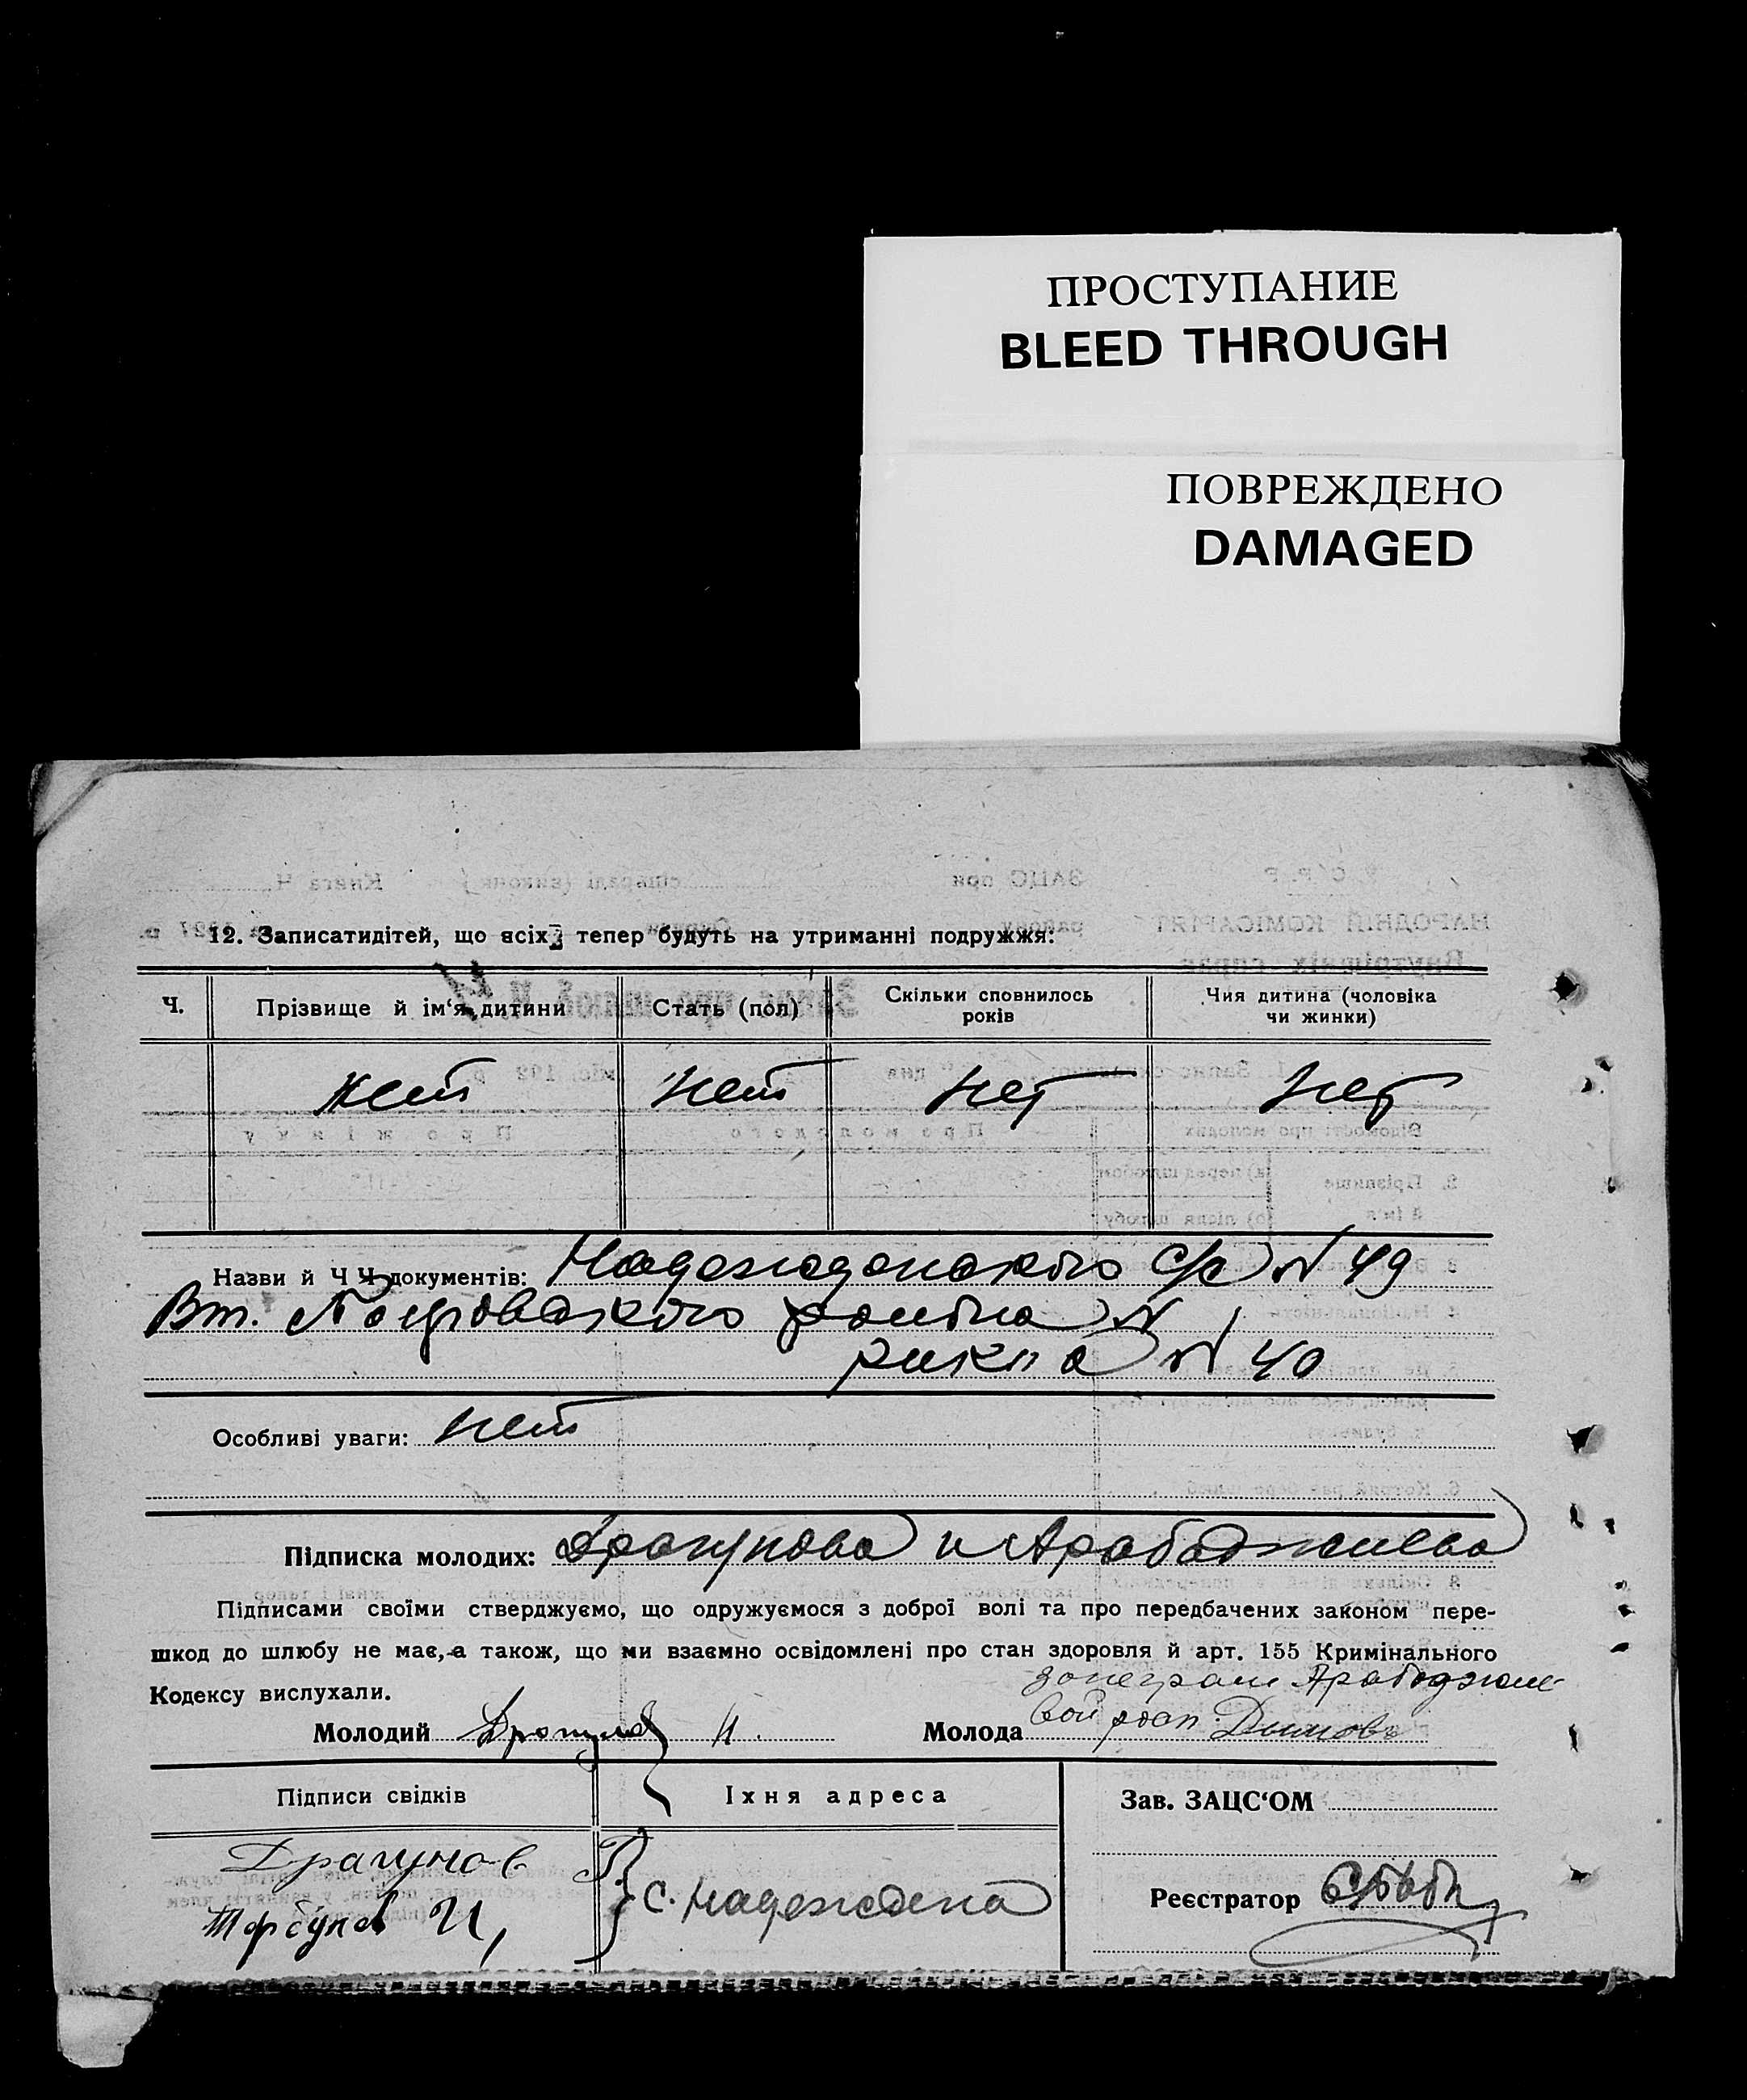 ПРОСТУПАНИЕ
BLEED THROUGH
ПОВРЕЖДЕНО
DAMAGED
12. Записатидітей, що всіх тепер будуть на утриманні подружжя:
Ч. Прізвище й ім‘я дитини Стать (пол) Скільки сповнилось років Чия дитина (чоловіка чи жинки)
нет нет нет нет
Назви й Ч Ч документів: Надеждонского с/с N 49
Вт. N
N 40
Особливі уваги: нет
Підписка молодих: Драгунова и Арабаджиева
Підписами своїми стверджуємо, що одружуємося з доброї волі та про передбачених законом пере-
шкод до шлюбу не має, а також, що ми взаємно освідомлені про стан здоровля й арт. 155 Кримінального
Кодексу вислухали.
Молодий Драгунов И. Молода
Підписи свідків Їхня адреса Зав. ЗАЦС‘ОМ
Драгунов Г
с. Надеждена
И,
Реєстратор